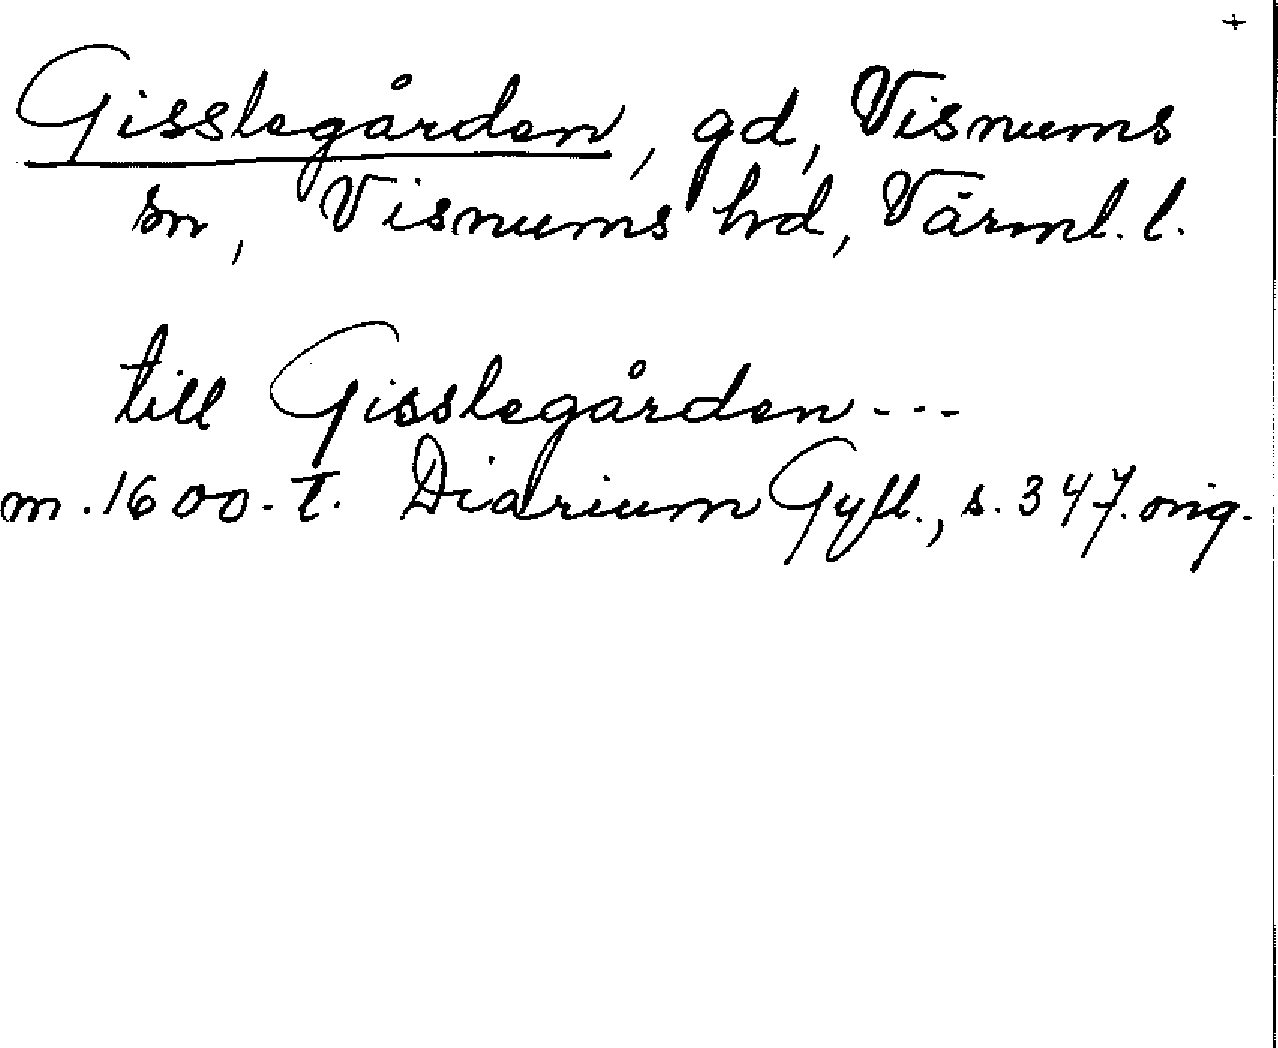 +
Gisslegården, gd, Visnums
sn, Visnums hd, Värml. l.
till Gisslegården ---
m. 1600-t. Diarium Gyll., s. 347. orig.